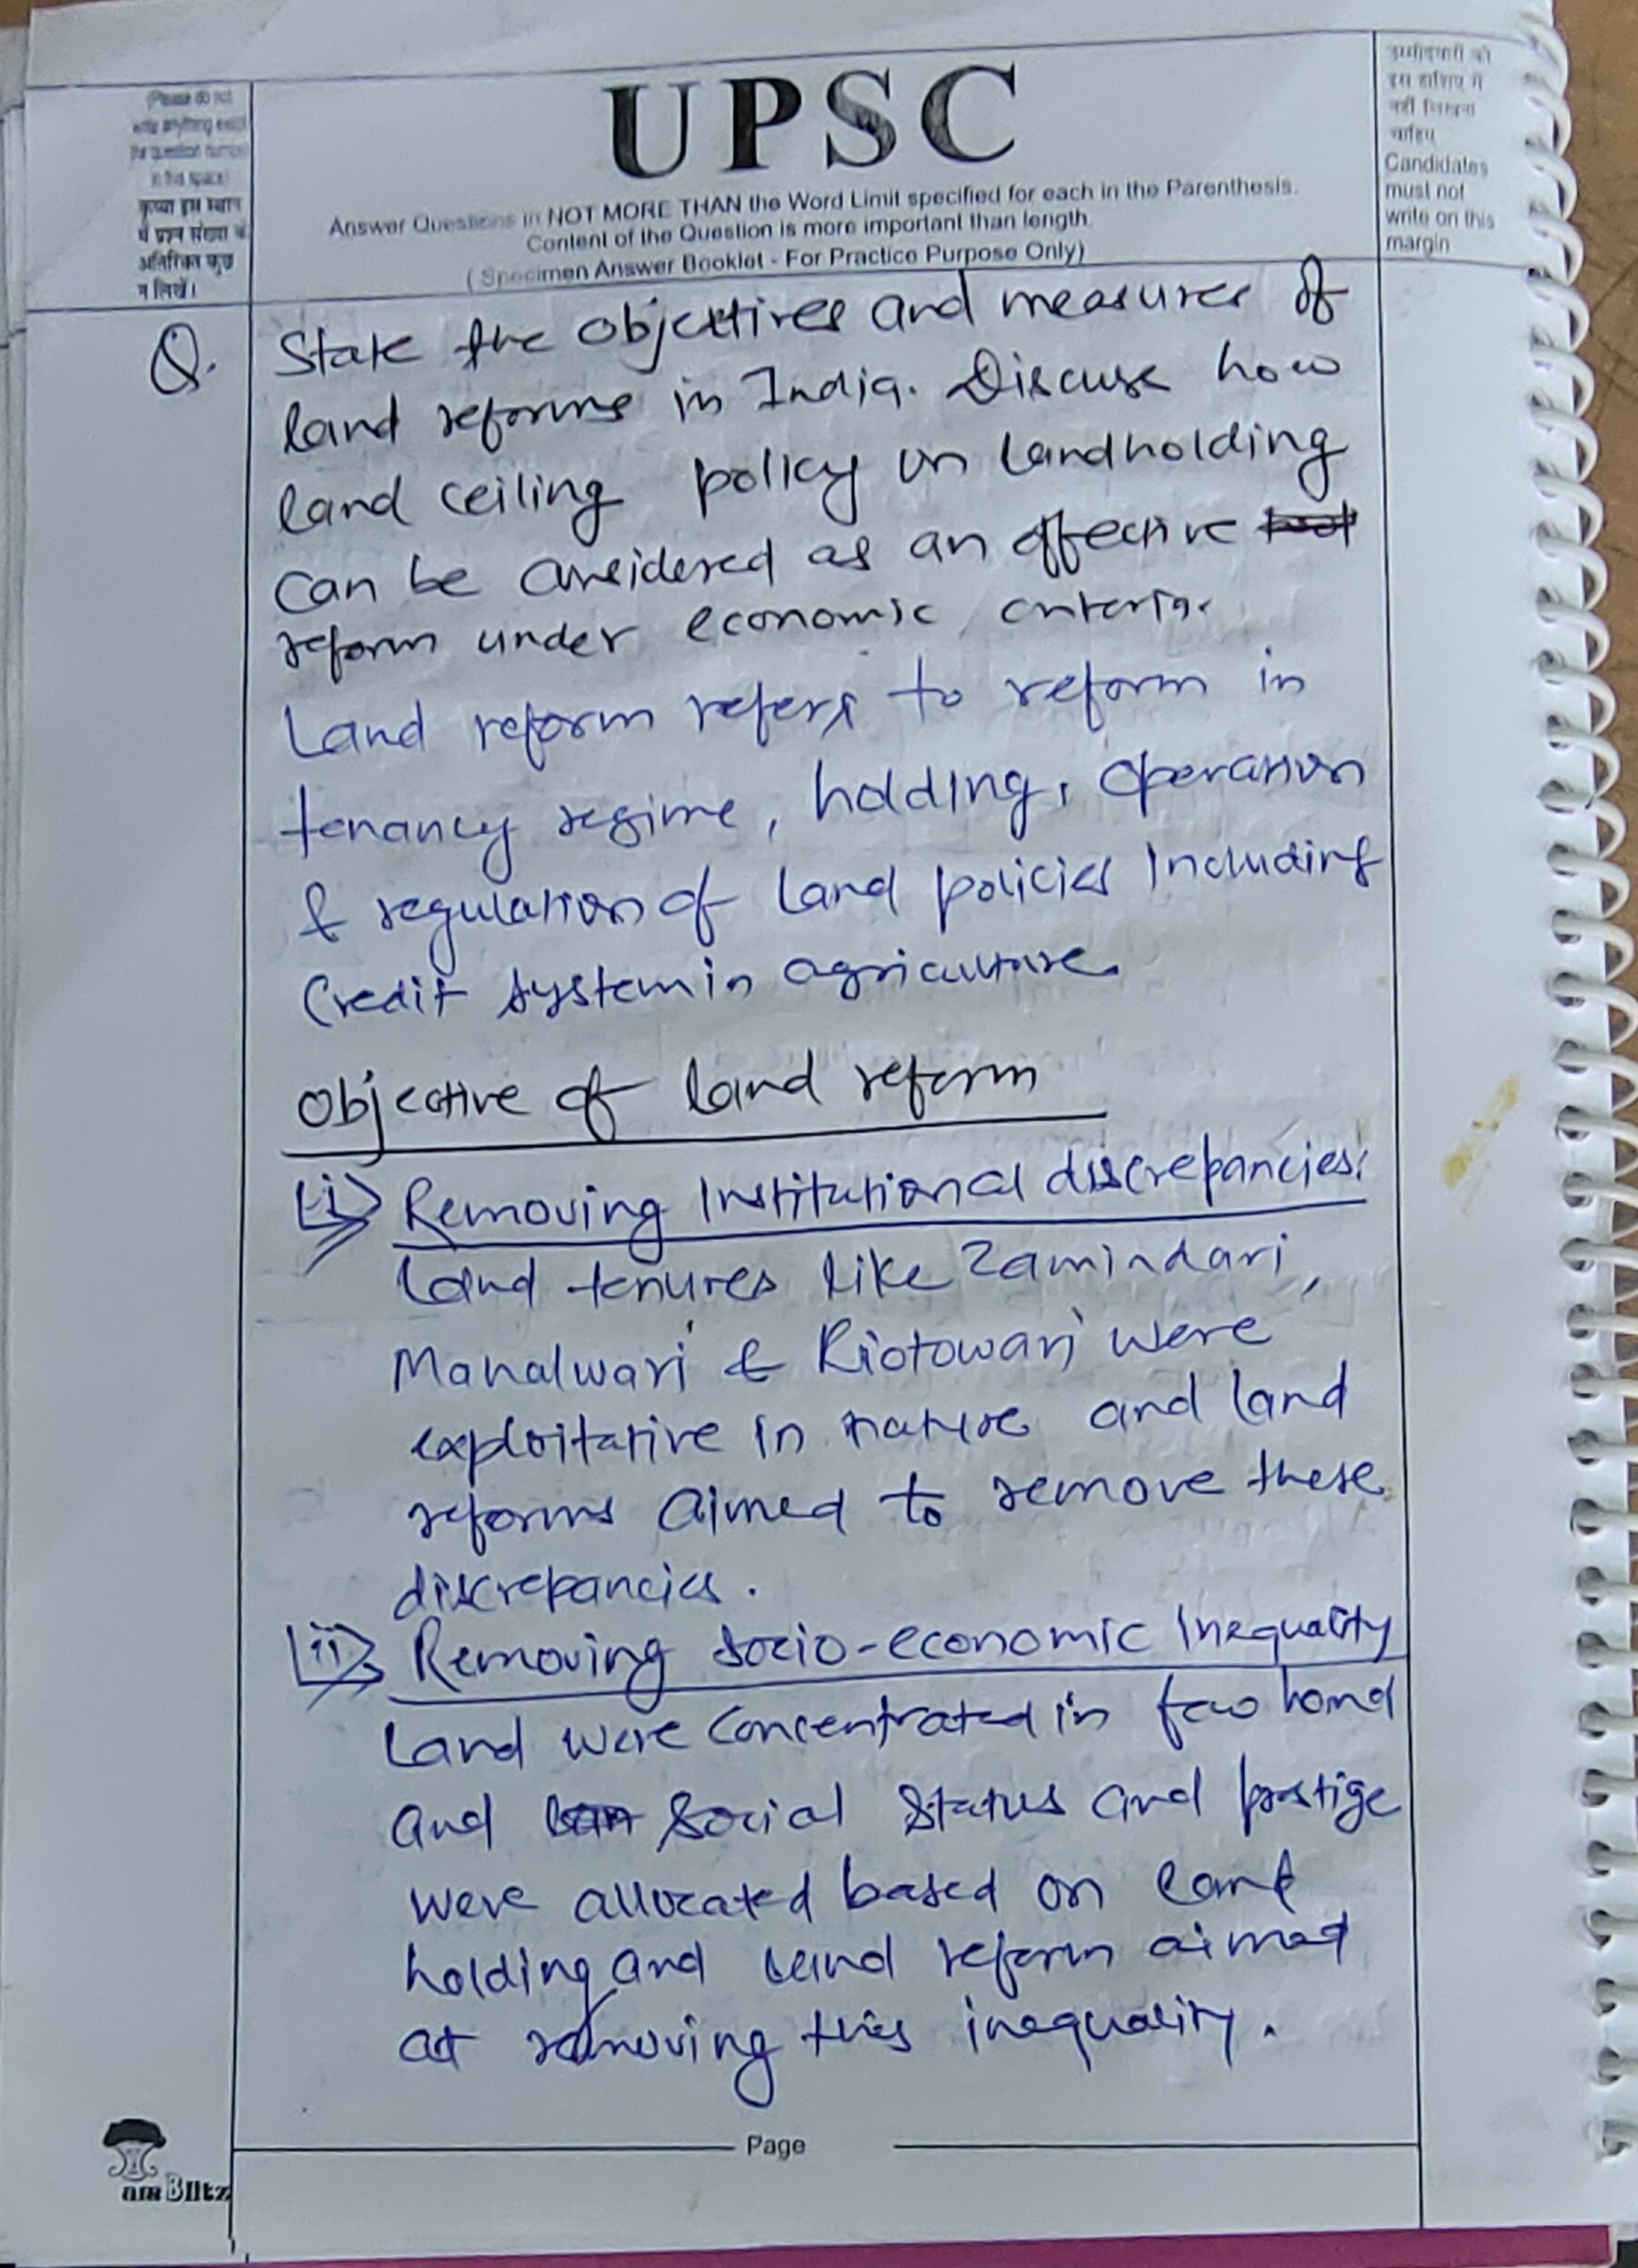 (Please do not
write anything except
the question number
in this space)
कृपया इस स्थान
में प्रश्न संख्या के
अतिरिक्त कुछ
न लिखें।
UPSC
Answer Questions in NOT MORE THAN the Word Limit specified for each in the Parenthesis.
Content of the Question is more important than length.
( Specimen Answer Booklet - For Practice Purpose Only)
उम्मीदवारों को
इस हाशिए में
नहीं लिखना
चाहिए
Candidates
must not
write on this
margin
Q. State the objectives and measures of
land reforms in India. Discuss how
land ceiling policy on landholding
can be considered as an effective
reform under economic criteria.
Land reform refers to reform in
tenancy regime, holding, operation
& regulation of land policies including
Credit system in agriculture.
Objective of land reform
(i) Removing Institutional discrepancies:
Land tenures like Zamindari,
Mahalwari & Riotowari were
exploitative in nature and land
reforms aimed to remove these
discrepancies.
(ii) Removing Socio-economic Inequality
Land were concentrated in few hand
and social status and prstige
were allocated based on land
holding and land reform aimed
at removing this inequality.
Page
Blitz